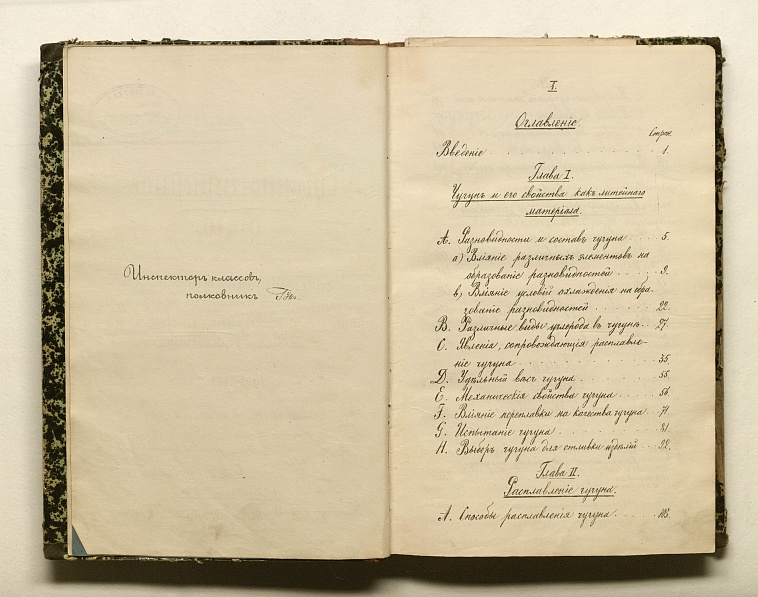 Инспекторъ классовъ,
полковникъ
I.
Оглавленіе.
Стран.
Введеніе . . . . . . . . . . . . 1.
Глава I.
Чугунъ и его свойства какъ литейнаго
матеріала.
A. Разновидности и составъ чугуна . . . . 5.
a) Вліяніе различныхъ элементовъ на
образованіе разновидностей . . . . 9.
b) Вліяніе условій охлажденія на обра-
зованіе разновидностей . . . . . 22.
B. Различные виды углерода въ чугунѣ . . 27.
C. Явленія, сопровождающія расплавле-
ніе чугуна . . . . . . . . . . . 35.
D. Удѣльный вѣсъ чугуна . . . . . . . 55.
E. Механическія свойства чугуна . . . . 56.
F. Вліяніе переплавки на качества чугуна . . 71.
G. Испытаніе чугуна . . . . . . . . . 81.
H. Выборъ чугуна для отливки издѣлій . . 92.
Глава II.
Расплавленіе чугуна.
A. Способы расплавленія чугуна . . . . 103.